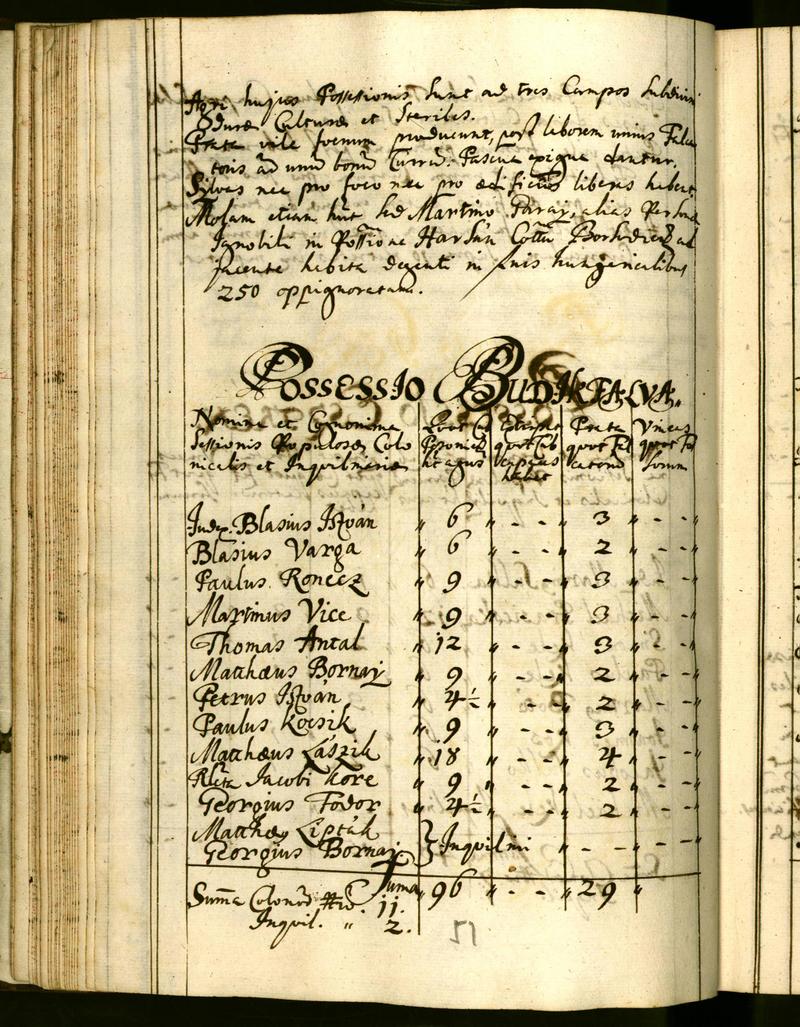 Agri hujus Possessionis sunt ad tres Campos subdivisi
Duræ Culturæ et Steriles.
Prata vile foenum producunt, post laborem unius Falca
toris ad unum bonum Currum. Pascua exigua dantur.
Sylvas nec pro foco nec pro ædificiis liberas habent
Molam etiam hnt sed Martino Paray, alias Persona
Ignobili in Possione Harsán Cottu Borsodien ad
jacente habita degenti in finis hungaricalibus
250 oppignoratam.
POSSESSIO BUDIKFALVA.
Nomina et Cognomina
Sessionis Populosæ Colo
nicalis et Inquilinariæ
Prata quot Fal
catorum
Vineas quot Fo
sorum
Judex Blasius István " 6 " - - " 3 " - - "
Blasius Varga " 6 " - - " 2 " - - "
Paulus Ronecz " 9 " - - " 3 " - - "
Martinus Vice " 9 " - - " 3 " - - "
Thomas Antal " 12 " - - " 3 " - - "
Matthæus Bornaj " 9 " - - " 2 " - - "
Petrus István " 4½ " - - " 2 " - - "
Paulus Kocsik " 9 " - - " 3 " - - "
Matthæus Lászik " 18 " - - " 4 " - - "
Rlcta Jacobi Kore " 9 " - - " 2 " - - "
Georgius Fodor " 4½ " - - " 2 " - - "
Matthæg Lipták
Georgius Bornaj } Inquilini " - - - " - - "
Suma " 96 " - - " 29 "
Summa Colonorum 11.
Inquil. " 2.
51